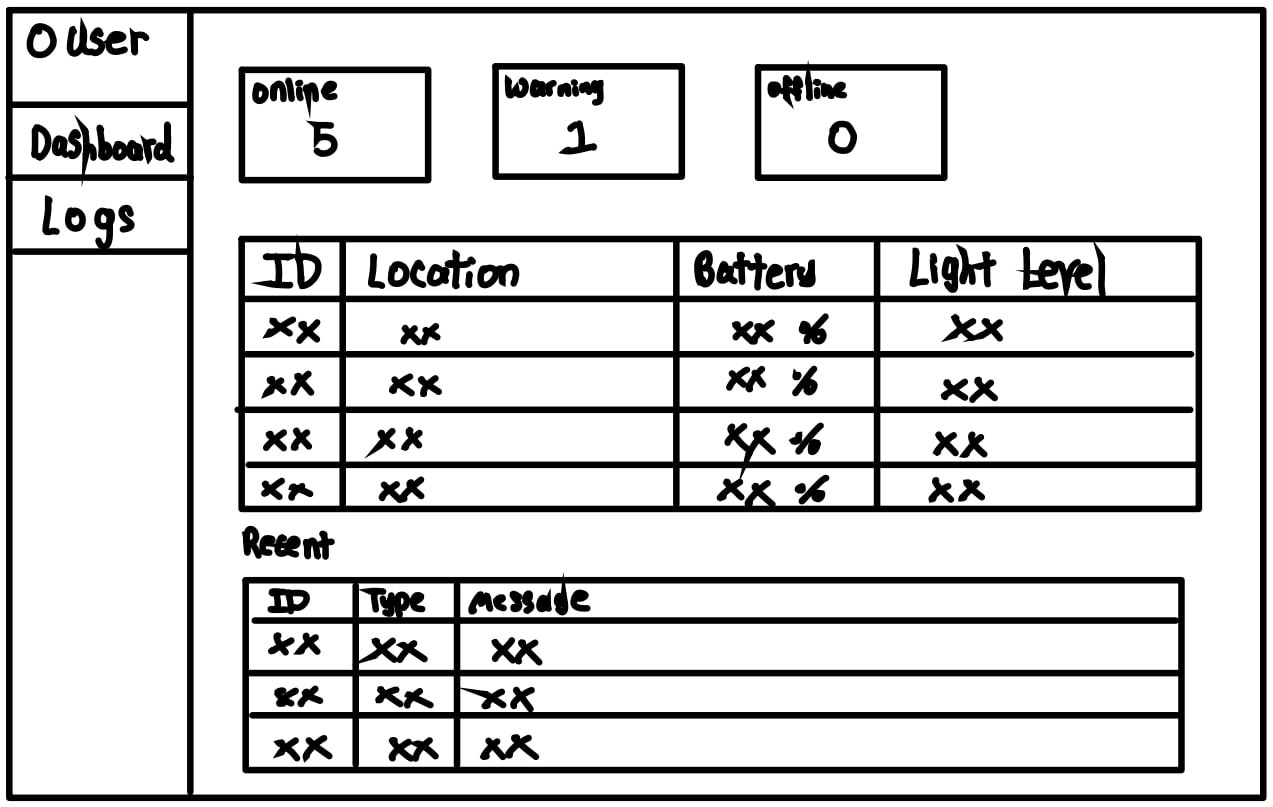 O User
Dashboard
Logs
online
5
Warning
1
offline
0
ID Location Battery Light Level
xx xx xx % xx
xx xx xx % xx
xx xx xx % xx
xx xx xx % xx
Recent
ID Type Message
xx xx xx
xx xx xx
xx xx xx